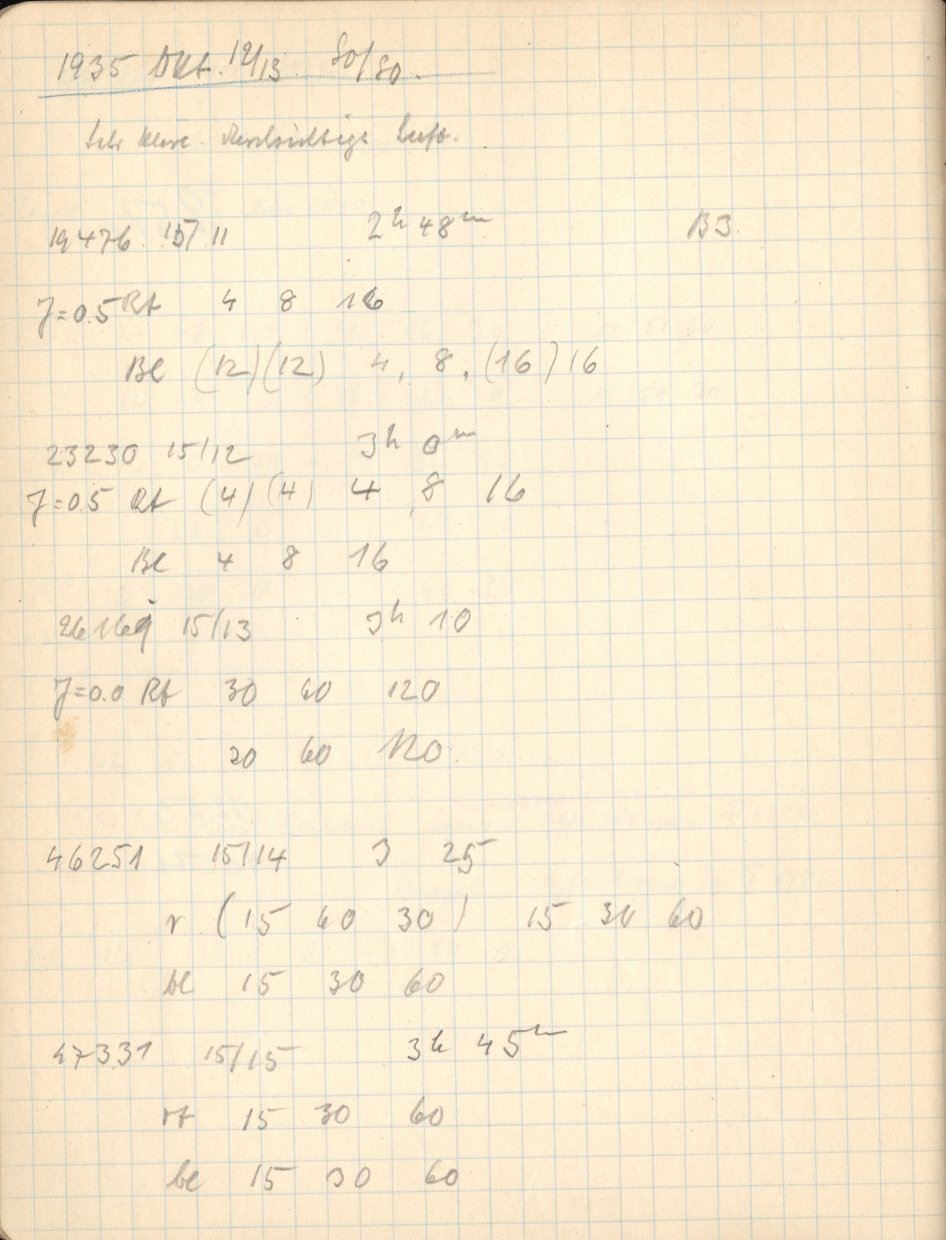 1935 Okt. 12/13 So/So.
Sehr klare durchsichtige Luft.
19476 15/11 2h 48m B3.
J=0.5 Rt 4 8 16
Bl (12)(12) 4, 8, (16) 16
23230 15/12 3h 0m
J=0.5 Rt (4) (4) 4 8 16
Bl 4 8 16
15/13 3h 10
J=0.0 Rt 30 60 120
30 60 120
46251 15/14 3 25
r (15 60 30) 15 30 60
bl 15 30 60
47331 15/15 3h 45m
rt 15 30 60
bl 15 30 60